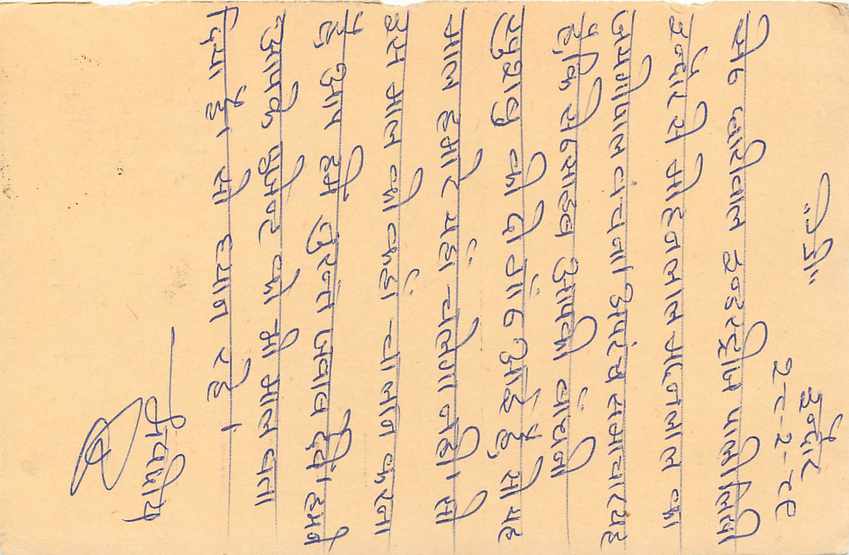 "श्री"
इन्दौर
२८-२-८९
सेठ धारीवाल इन्डस्ट्रीज पाली लिखी
इन्दौर से मोहनलाल मदनलाल का
जयगोपाल बंचना। अपरंच समाचार यह
है, कि सेठ साहब आपकी
की दो गांठ आई है, सो यह
माल हमारे यहां चलेगा नहीं। सो
इस माल को कहां चालान करना
है, आप हमें तुरन्त जवाब देवें। हमने
आपके एजेन्ट को भी माल बता
दिया है। सो ध्यान रहे।
भवदीय